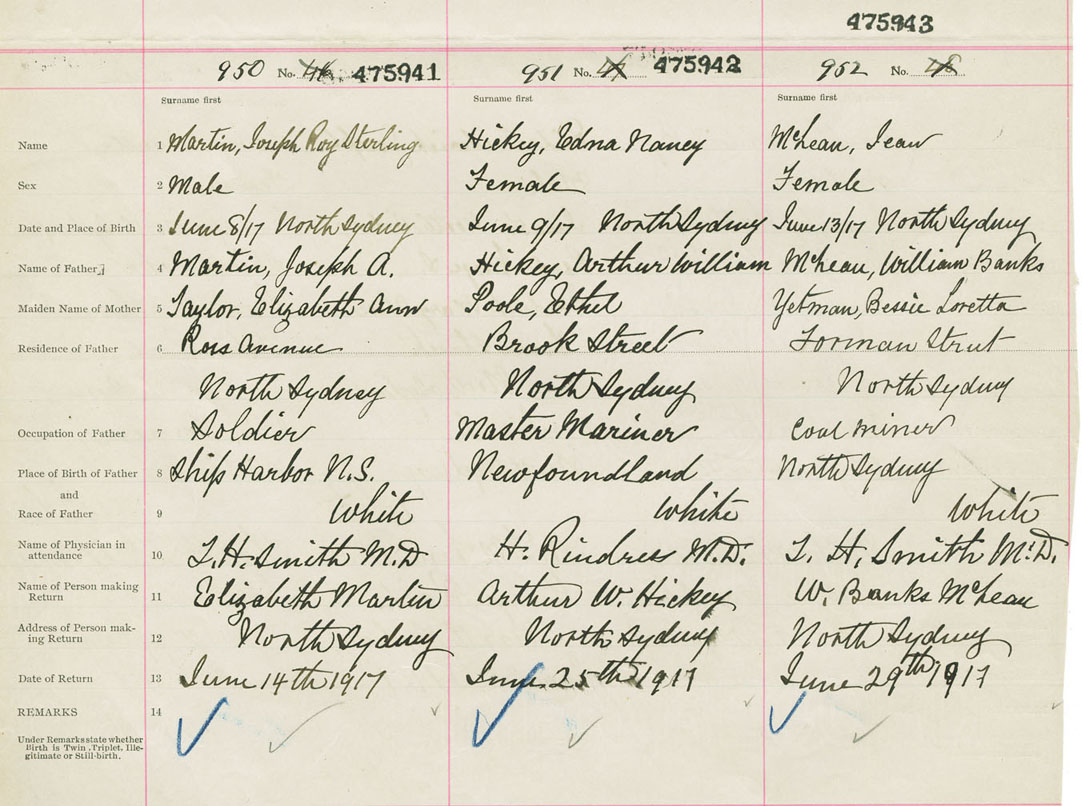 475943
950 No. 46 475941 951 No. 47 475942 952 No. 48
Surname first Surname first Surname first
Name 1 Martin, Joseph Roy Sterling Hickey, Edna Nancy McLean, Jean
Sex 2 Male Female Female
Date and Place of Birth 3 June 8/17 North Sydney June 9/17 North Sydney June 13/17 North Sydney
Name of Father 4 Martin, Joseph A. Hickey, Arthur William McLean, William Banks
Maiden Name of Mother 5 Taylor, Elizabeth Ann Poole, Ethel Yetman, Bessie Loretta
Residence of Father 6 Ross Avenue Brook Street Forman Street
North Sydney North Sydney North Sydney
Occupation of Father 7 Soldier Master Mariner Coal miner
Place of Birth of Father 8 Ship Harbor N.S. Newfoundland North Sydney
and
Race of Father 9 White White White
Name of Physician in
attendance 10 T. H. Smith M.D H. Rindress M.D. T. H. Smith M.D.
Name of Person making
Return 11 Elizabeth Martin Arthur W. Hickey W. Banks McLean
Address of Person mak-
ing Return 12 North Sydney North Sydney North Sydney
Date of Return 13 June 14th 1917 June 25th 1917 June 29th 1917
REMARKS 14
Under Remarks state whether
Birth is Twin, Triplet, Ille-
gitimate or Still-birth.